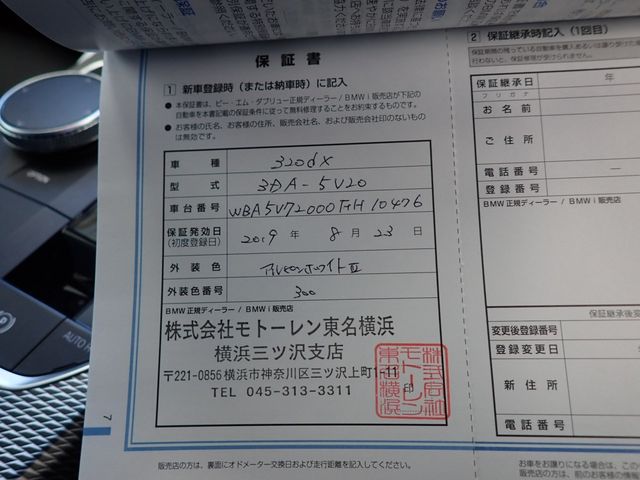 保証書
1 新車登録時（または納車時）に記入
● 本保証書は、ビー・エム・ダブリュー正規ディーラー / BMW i 販売店が下記の
自動車を本書記載の保証条件に従って無料修理することをお約束するものです。
● お客様の氏名、お客様の住所、販売会社名、および販売会社印のないもの
は無効です。
車種 320dX
型式 3DA-5V20
車台番号
保証発効日 2019 年 8 月 23 日
(初度登録日)
外装色 アルピンホワイトⅢ
外装色番号 300
BMW 正規ディーラー / BMW i 販売店
株式会社モトーレン東名横浜
横浜三ツ沢支店
〒221-0856 横浜市神奈川区三ツ沢上町1-11
TEL 045-313-3311
印
株式会社
モトーレン
東名横浜
販売店の方は、裏面にオドメーター交換日および走行距離を記入してください。
7
2 保証継承時記入（1回目）
保証継承日 年
フリガナ
お名前
ご住所
電話番号 —
登録番号
BMW 正規ディーラー / BMW i 販売店
保証継承後変
変更後登録番号
登録変更日
新住所
電話番号
お車をお譲りになる場合は、この
OPTION
P